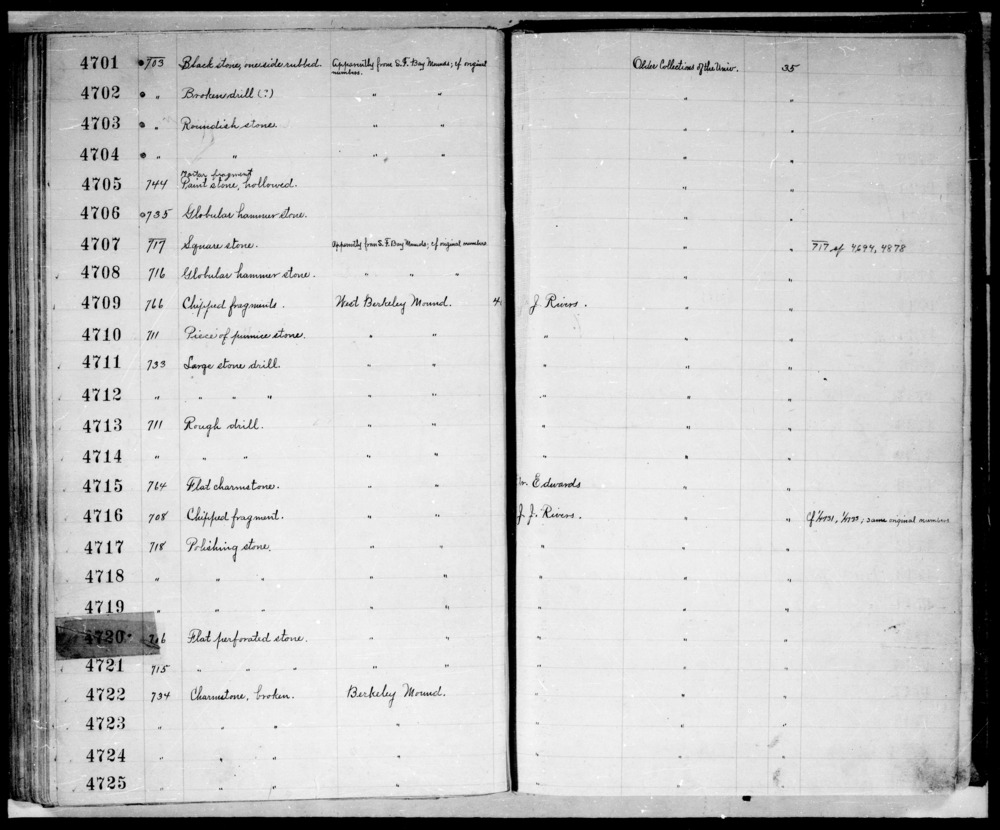 4701 703 Black stone, one side rubbed. Apparently from S.F. Bay Mounds; cf original numbers. Older Collections of the Univ. 35
4702 " Broken drill (?) " " " "
4703 " Roundish stone. " " " "
4704 " " " " " "
4705 744 Paint stone, hollowed. " "
4706 735 Globular hammer stone. " "
4707 717 Square stone. Apparently from S.F. Bay Mounds; cf original numbers " " 717 cf 4694, 4878
4708 716 Globular hammer stone. " " " " "
4709 766 Chipped fragments. West Berkeley Mound. 4 J. Rivers. " "
4710 711 Piece of pumice stone. " " " " "
4711 733 Large stone drill. " " " " "
4712 " " " " " " " " "
4713 711 Rough drill. " " " " "
4714 " " " " " " " "
4715 764 Flat charmstone. " " Edwards " "
4716 708 Chipped fragment. " " J. J. Rivers. " " same original numbers
4717 718 Polishing stone. " " " " "
4718 " " " " " " " "
4719 " " " " " " " "
4720 Flat perforated stone. " " " " "
4721 715 " " " " " " " "
4722 734 Charmstone, broken. Berkeley Mound. " " "
4723 " " " " " " "
4724 " " " " " " "
4725 " " " " " " "